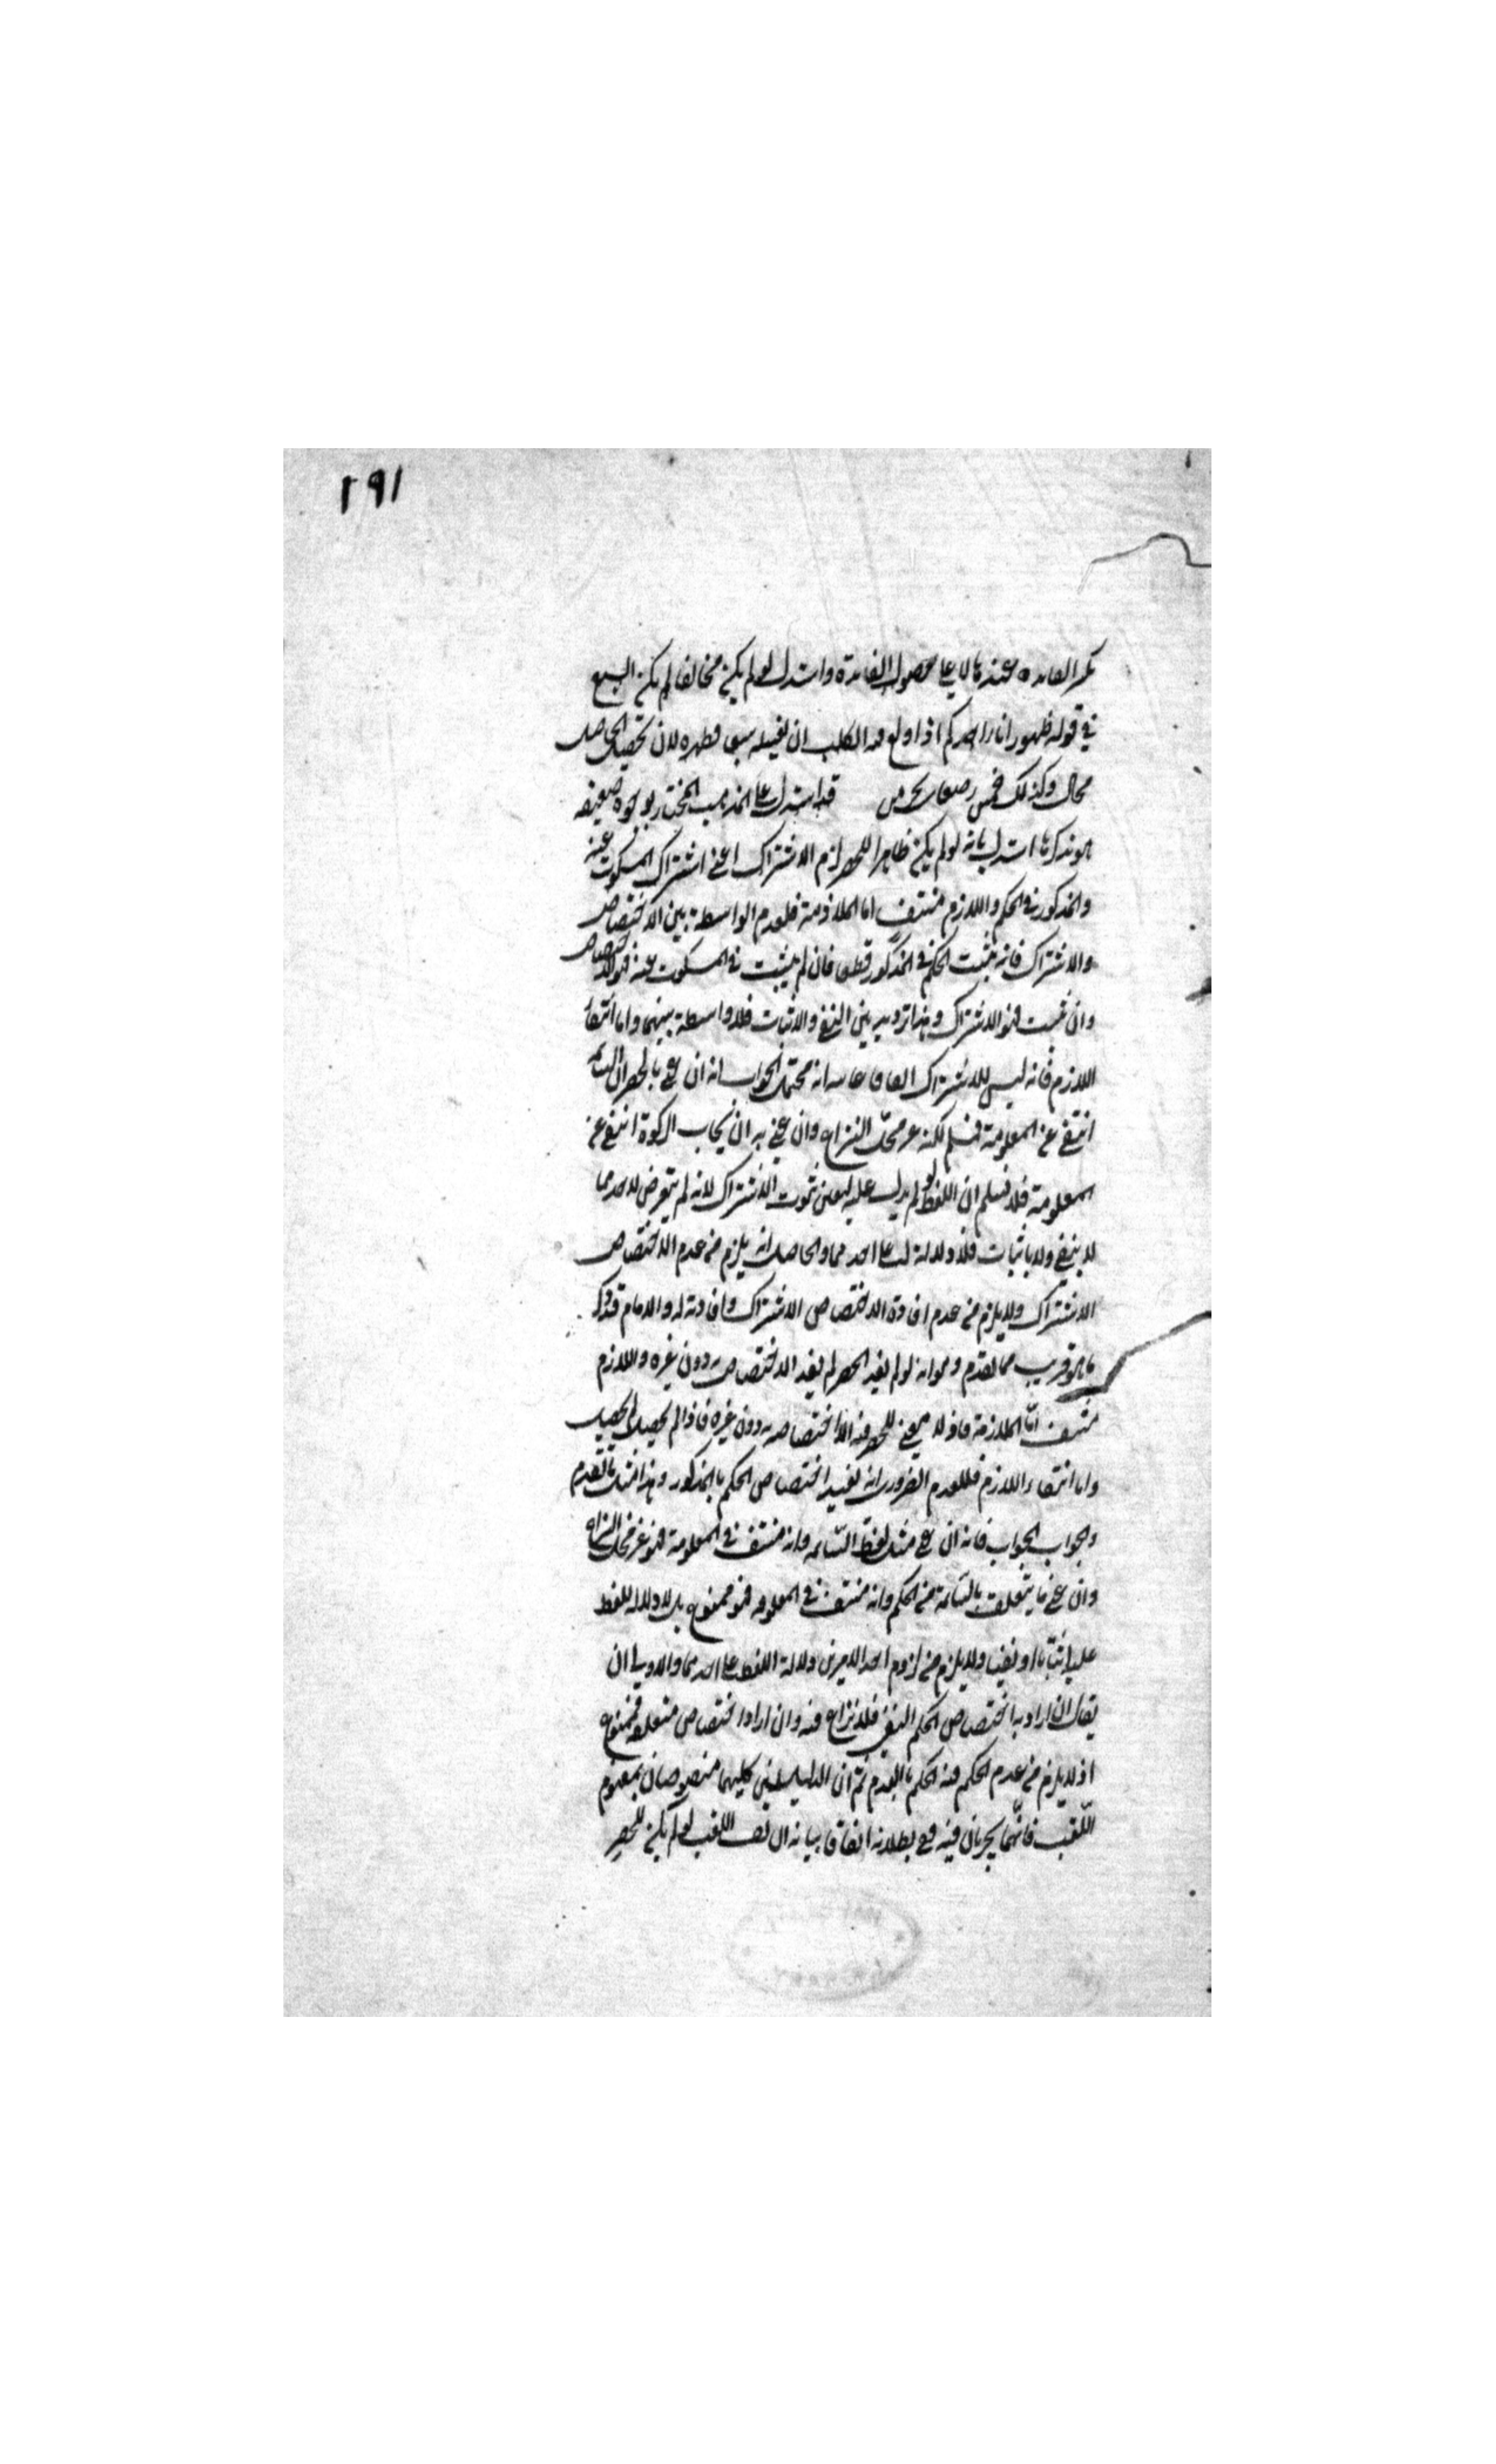 ١٩١
تكثر الفائدة عند ما لا يدل على حصول الفائدة واستدل لو لم يكن مخالفا لم يكن السبع
في قوله طهور اناء احدكم اذا ولغ فيه الكلب ان يغسله سبعا مطهرة لان تحصيل الحاصل
محال وكذلك خمس رضعات يحرمن قد استدل على المذهب المختار بوجوه ضعيفة
هو نذكرها استدل بانه لو لم يكن ظاهرا للحصر لزم الاشتراك اعني اشتراك المسكوت عنه
والمذكور في الحكم واللازم منتف اما الملازمة فلعدم الواسطة بين الاختصاص
والاشتراك فانه يثبت الحكم في المذكور قطعا فان لم يثبت في المسكوت عنه فهو الاختصاص
وان ثبت فهو الاشتراك وهذا ترديد بين النفي والاثبات فلا واسطة بينهما واما انتفاء
اللازم فانه ليس للاشتراك اتفاقا غايته انه محتمل الجواب انه ان عنى بالحصر ان السائمة
انتفى عن المعلوفة فمسلم لكنه غير محل النزاع وان عنى به ان ايجاب الزكوة انتفى عن
المعلوفة فلا نسلم ان اللفظ لو لم يدل عليه لتعين ثبوت الاشتراك لانه لم يتعرض لاحدهما
لا بنفي ولا باثبات فلا دلالة له على احدهما والحاصل انه يلزم من عدم الاختصاص
الاشتراك ولا يلزم من عدم افادة الاختصاص الاشتراك وافادته له والامام قد ذكر
ما هو قريب مما تقدم وهو انه لو لم يفد الحصر لم يفد الاختصاص به دون غيره واللازم
منتف امّا الملازمة فاذ لا معنى للحصر فيه الا اختصاصه به دون غيره فاذا لم يحصل لم يحصل
واما انتفاء اللازم فللعلم الضروري انه يفيد اختصاص الحكم بالمذكور وهذا مثل ما تقدم
والجواب الجواب فانه ان عنى مثل لفظ السّائمه وانه منتف في المعلوفة فهو غير محل النزاع
وان عنى ما يتعلق بالسّائمة من الحكم وانه منتف في المعلوفه فهو ممنوع بل لا دلالة للفظ
عليه اثباتا ونفيا ولا يلزم من لزوم احد الامرين دلالة اللفظ على احدهما والاولى ان
يقال ان اراد به اختصاص الحكم النفسي فلا نزاع فيه وان اراد اختصاص متعلقه فممنوع
اذ لا يلزم من عدم الحكم فيه الحكم بالعدم ثم ان الدليلين كليهما منقوضان بمفهوم
اللّقب فانّهما يجريان فيه مع بطلانه اتفاقا بيانه ان يقال اللقب لو لم يكن للحصر